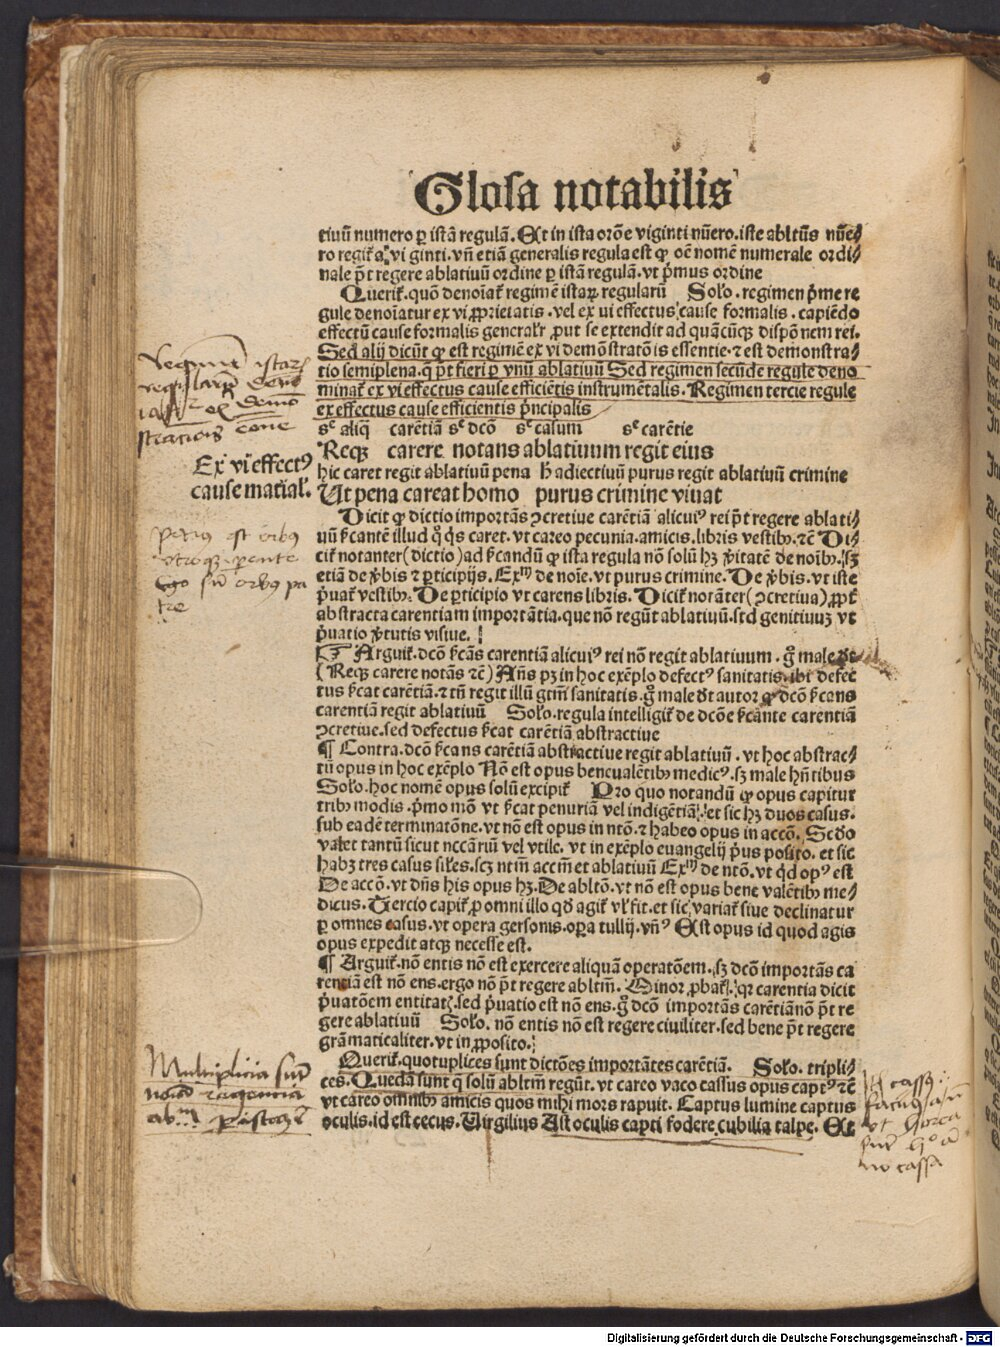 Glosa notabilis
tiuū numero ꝑ istā regulā. Et in ista orōe viginti nūero. iste abltūs nūe/
ro regit̄ a vi ginti. vn̄ etiā generalis regula est ꝙ oē nomē numerale ordi/
nale pt̄ regere ablatiuū ordine ꝑ istā regulā. vt p̄mus ordine
Querit̄. quō denoīat̄ regimē istaꝝ regularū Solo. regimen p̄me re
gule denoīatur ex vi ꝓprietatis. vel ex ui effectus cause formalis. capiēdo
effectū cause formalis generalr̄ ꝓut se extendit ad quācūqꝫ dispōnem rei.
Sed alij dicūt ꝙ est regimē ex vi demōstratōis essentie. ⁊ est demonstra/
tio semiplena. q̄ pt̄ fieri ꝑ vnū ablatiuū Sed regimen secūde regule deno
minat̄ ex vi effectus cause efficiētis instrumētalis. Regimen tercie regule
ex effectus cause efficientis p̄ncipalis
sᶜ aliq̄ carētiā sᶜ dcō sᶜ casum sᶜ carētie
Reqꝫ carere notans ablatiuum regit eius
Ex vi effectꝰ
cause matial'.
hic caret regit ablatiuū pena h̄ adiectiuū purus regit ablatiuū crimine
Ut pena careat homo purus crimine viuat
Dicit ꝙ dictio importās ꝯcretiue carētiā alicuiꝰ rei pt̄ regere ablati/
uū s̄cantē illud qᵒ q̇s caret. vt careo pecunia. amicis. libris vestibꝫ. ⁊c̄ Di/
cit̄ notanter (dictio) ad s̄candū ꝙ ista regula nō solū hꝫ v̄itatē de noībꝫ. sꝫ
etiā de v̄bis ⁊ ꝑticipijs. Exᵐ de noīe. vt purus crimine. De v̄bis. vt iste
p̄uat̄ vestibꝫ. De ꝑticipio vt carens libris. Dicit̄ notāter (ꝯcretiua) ꝓpt̄
abstracta carentiam importātia. que nō regūt ablatiuū. sed genitiuuꝫ vt
p̄uatio v̄tutis visiue.
Arguit̄. dcō s̄cās carentiā alicuiꝰ rei nō regit ablatiuum. gᵒ male dr̄
(Reqꝫ carere notās ⁊c̄) Añs pꝫ in hoc exēplo defectꝰ sanitatis. ibi defec
tus s̄cat carētiā. ⁊ tn̄ regit illū gtm̄ sanitatis. gᵒ male dr̄ autor ꝙ dcō s̄cans
carentiā regit ablatiuū Solo. regula intelligit̄ de dcōe s̄cante carentiā
ꝯcretiue. sed defectus s̄cat carētiā abstractiue
¶ Contra. dcō s̄cans carētiā abstractiue regit ablatiuū. vt hoc abstrac/
tū opus in hoc exēplo Nō est opus beneualētibꝫ medicꝰ. sꝫ male hn̄tibus
Solo. hoc nomē opus solū excipit̄ Pro quo notandū ꝙ opus capitur
tribꝫ modis. p̄mo mō vt s̄cat penuriā vel indigētiā. et sic hꝫ duos casus.
sub eadē terminatōne. vt nō est opus in ntō. ⁊ habeo opus in accō. Scdo
valet tantū sicut nccāriū vel vtile. vt in exēplo euangelij p̄us posito. et sic
habꝫ tres casus siles. scꝫ ntm̄ accm̄ et ablatiuū Exᵐ de ntō. vt qd̄ opꝰ est
De accō. vt dn̄s his opus hꝫ. De abltō. vt nō est opus bene valētibꝫ me/
dicus. Tercio capit̄ ꝓ omni illo qd̄ agit̄ vl' fit. et sic variat̄ siue declinatur
ꝑ omnes casus. vt opera gersonis. oꝑa tullij. vn̄ꝰ Est opus id quod agis
opus expedit atqꝫ necesse est.
¶ Arguit̄. nō entis nō est exercere aliquā operatōem. sꝫ dcō importās ca
rentiā est nō ens. ergo nō pt̄ regere abltm̄. Minor ꝓbat̄. qꝛ carentia dicit
p̄uatōem entitat̄. sed p̄uatio est nō ens. gᵒ dcō importās carētiā nō pt̄ re
gere ablatiuū Solo. nō entis nō est regere ciuiliter. sed bene pt̄ regere
grāmaticaliter. vt in ꝓposito.
Querit̄. quotuplices sunt dictōes importātes carētiā. Solo. tripli/
ces. Quedā sunt q̄ solū abltm̄ regūt. vt careo vaco cassus opus captꝰ ⁊c̄
vt careo omnibꝫ amicis quos mihi mors rapuit. Captus lumine captus
oculis. id est cecus. Virgilius Ast oculis capti fodere cubilia talpe. Et
Digitalisierung gefördert durch die Deutsche Forschungsgemeinschaft - DFG